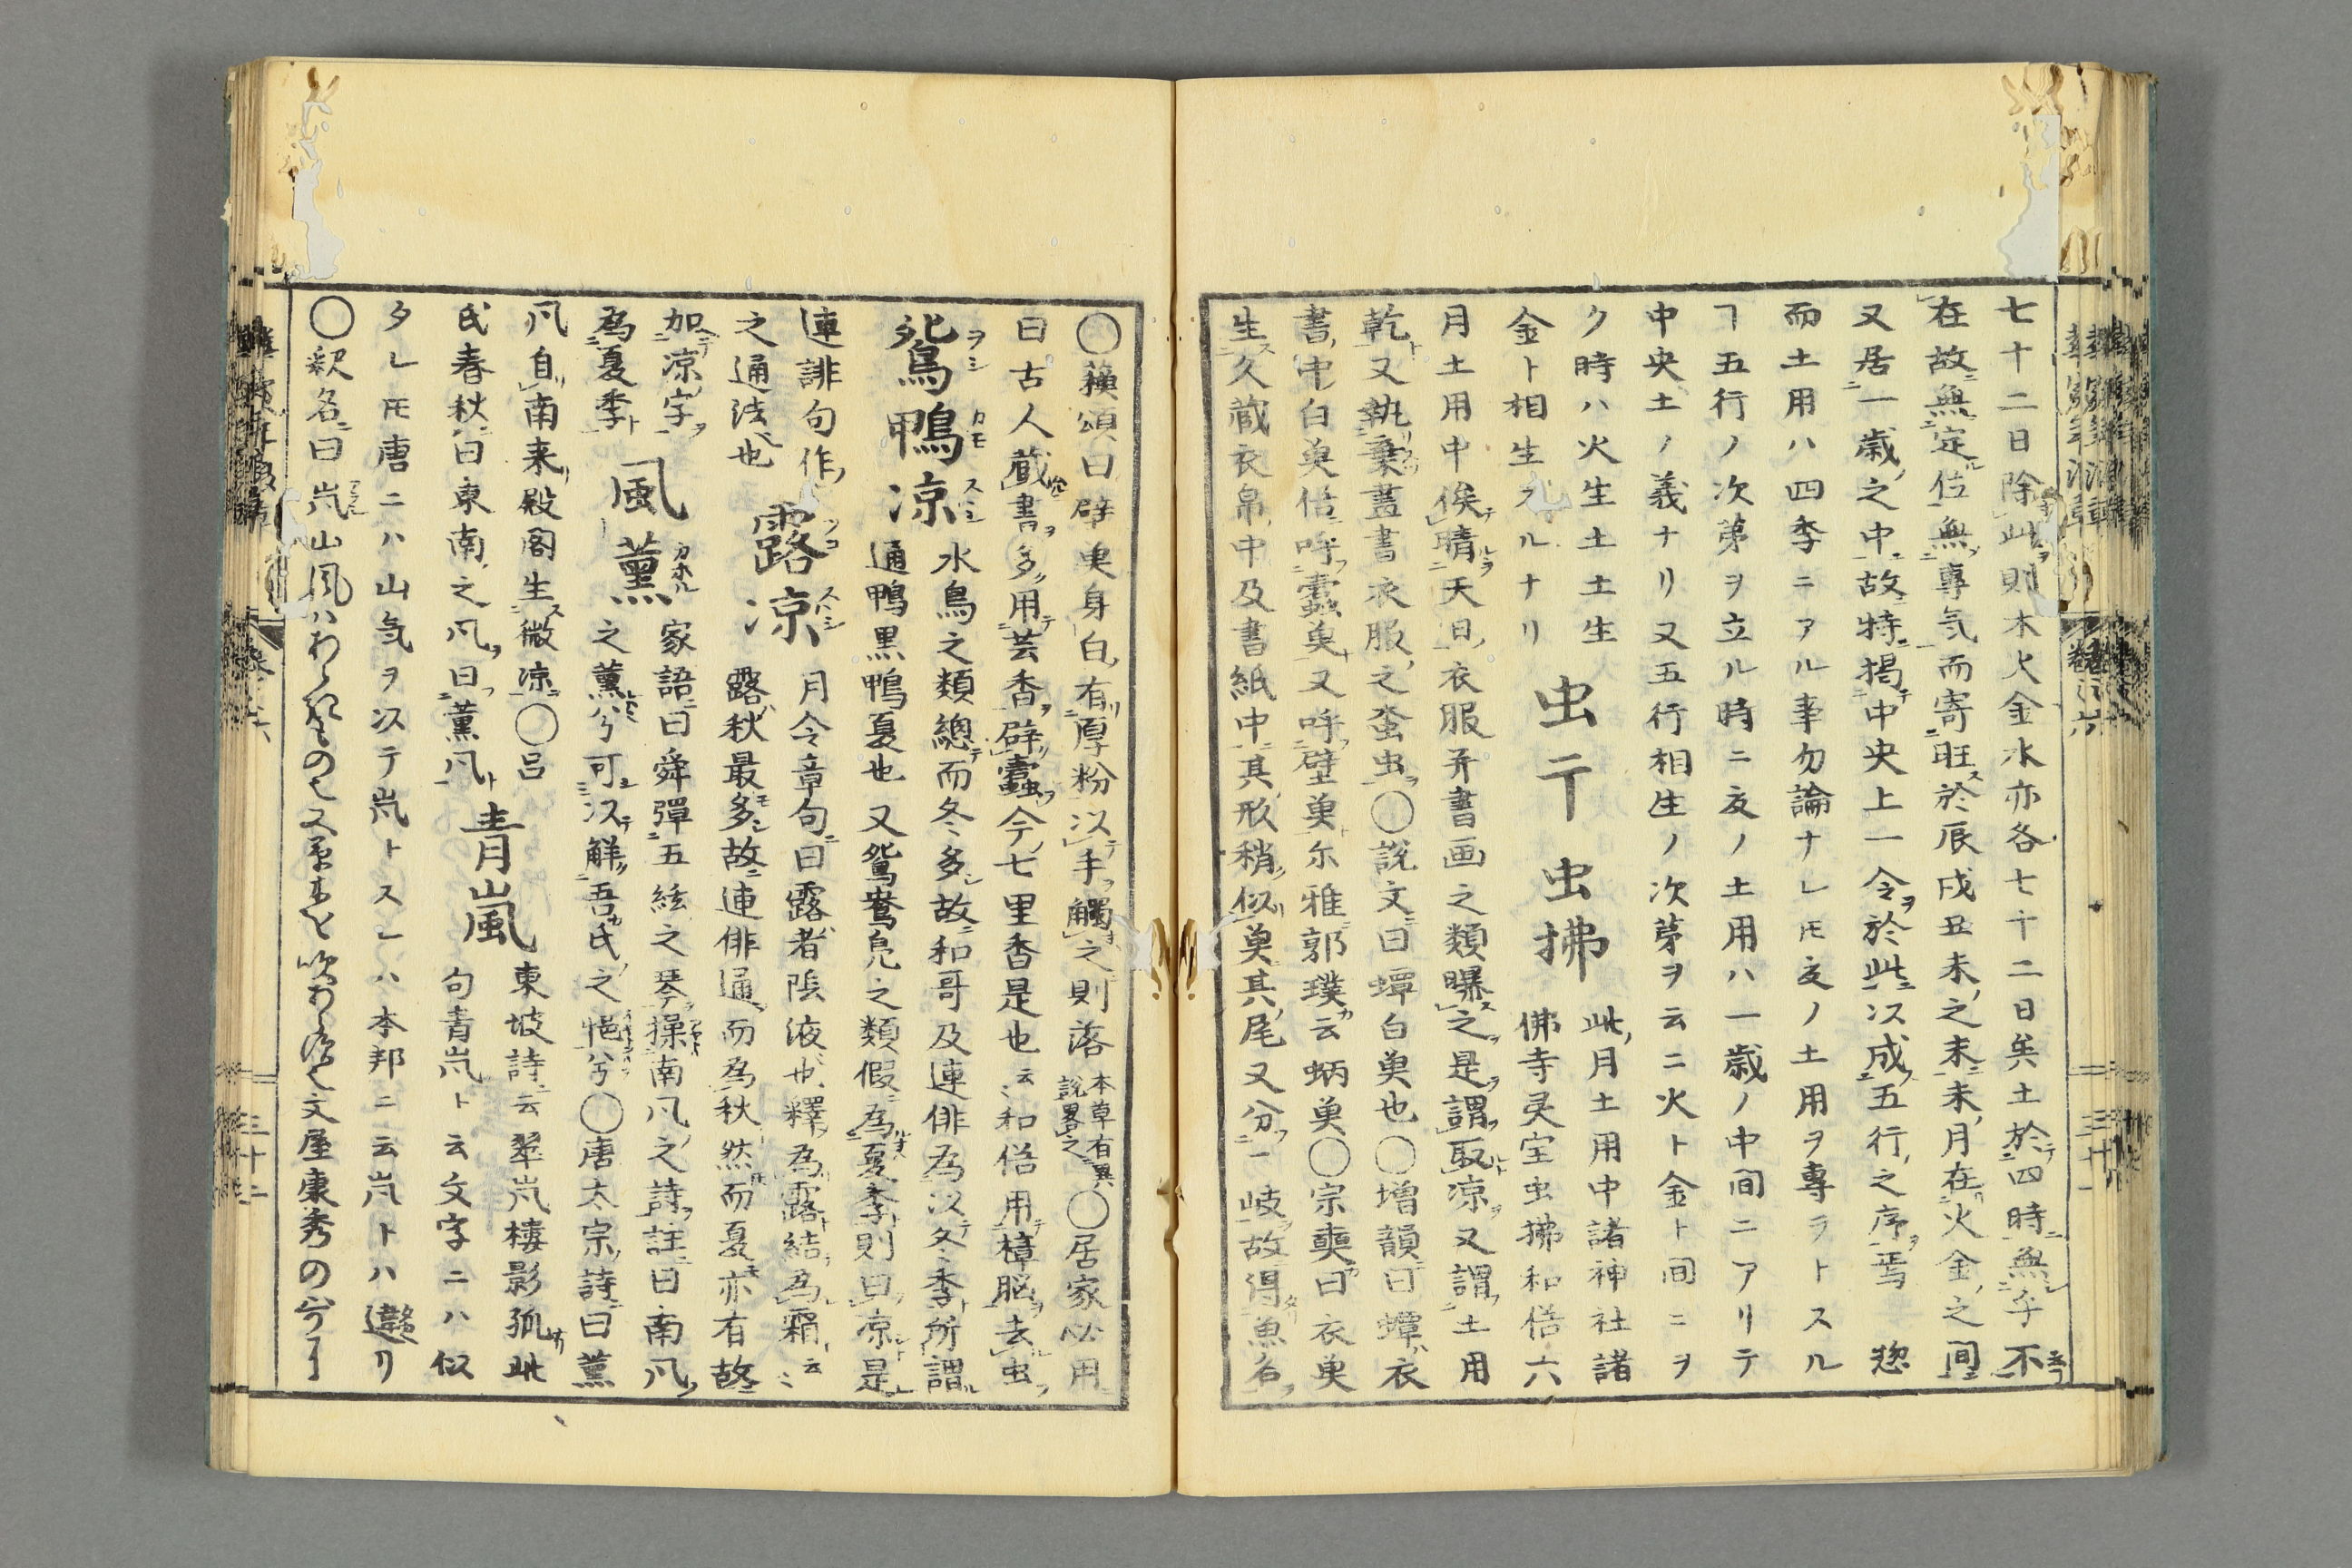 七十二日除此則木火金水亦各七十二日矣土於四時無乎不
在故無定位無專気而寄旺於辰戌丑未之末未月在火金之間
又居一歳之中故特掲中央上一令於此以成五行之序焉 惣
而土用ハ四季ニアル事勿論ナレ𪜈夏ノ土用ヲ專ラトスル
ヿ五行ノ次第ヲ立ル時ニ夏ノ土用ハ一歳ノ中間ニアリテ
中央土ノ義ナリ又五行相生ノ次第ヲ云ニ火ト金ト間ニヲ
ク時ハ火生土土生
金ト相生スルナリ
虫干
虫拂
此月土用中諸神社諸
佛寺灵宝虫拂和俗六
月土用中俟晴天日衣服并書画之類曝之是謂取凉又謂土用
乾又執棄蓋書衣服之蚕虫〇説文曰蟫白魚也〇増韻曰蟫衣
書中白魚俗呼蠧魚又呼壁魚尓雅郭璞云蛃魚〇宗奭曰衣魚
生久蔵衣帛中及書紙中其形稍似魚其尾又分二岐故得魚名
〇蘓頌曰壁魚身白有厚粉以手觸之則落本草有異説畧之〇居家必用
曰古人蔵書多用芸香辟蠧今七里香是也云々和俗用樟脳去虫
鴛鴨凉
水鳥之類總而冬多故和哥及連俳為以冬季所謂
通鴨黒鴨夏也又鴛鴦鳧之類假為夏季則曰凉是
連誹句作
之通法也
露凉
月令章句曰露者陰液也釋為露結為霜云々
露秋最多故連俳通而為秋然而夏亦有故
加凉字
為夏季
風薫
家語曰舜彈五絃之琴操南凡之詩註曰南凡
之薫兮可以觧吾氏之悒兮〇唐太宗詩曰薫
凡自南来殿閣生微凉〇呂
氏春秋曰東南之凡曰薫凡
青嵐
東坡詩云翠岚棲影孤此
句青岚ト云文字ニハ似
タレ𪜈唐ニハ山気ヲ以テ岚トスレハ本邦ニ云岚トハ違リ
〇釈名曰岚山風ハ
文屋康秀の